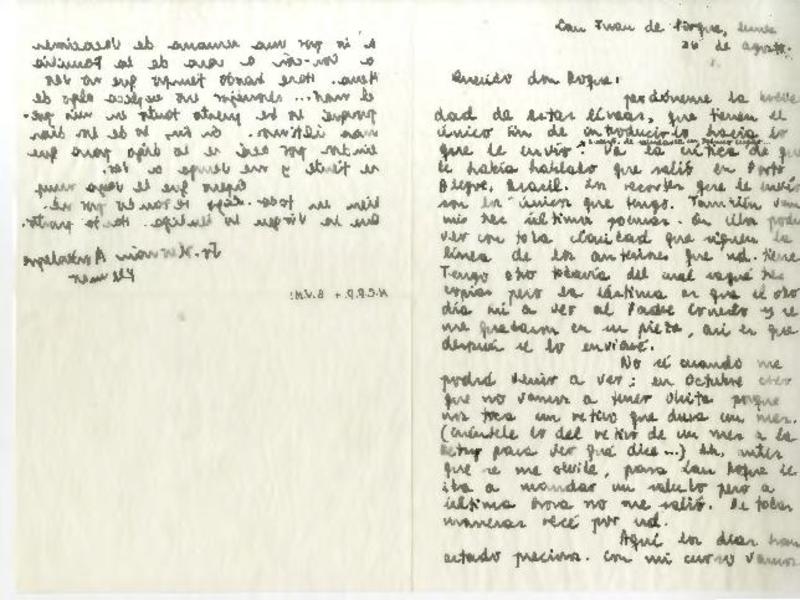 San Juan de Pirque, lunes
26 de agosto.
Querido don Roque:
perdóneme la breve
dad de estas líneas, que tienen el
único fin de introducirlo hacia lo
que le envío: Va la crítica de que
le había hablado que salió en Porto
Alegre, Brasil. Los recortes que le envío
son los únicos que tengo. También van
mis tres últimos poemas. En ellos podrá
ver con toda claridad que siguen la
línea de los anteriores que ud. tiene
Tengo otro todavía del cual saqué tres
copias pero la lástima es que el otro
día fui a ver al Padre y se
me quedaron en su pieza, así es que
después se lo enviaré.
No sé cuando me
podrá venir a ver; en Octubre creo
que no vamos a tener visita porque
nos toca un retiro que dura un mes.
(cuéntele lo del retiro de un mes a la
para ver qué dice...) Ah, antes
que se me olvide, para San Roque le
iba a mandar un saludo pero a
última hora no me salió. De todas
maneras recé por ud.
Aquí los días han
estado preciosos. Con mi curso vamos
a ir por una semana de vacaciones
a Con-cón a casa de la Familia
Mena. Hace tanto tiempo que no veo
el mar... Neruda nos explica algo de
porque lo he puesto tanto en mis poe-
mas últimos. En fin, lo de los días
lindos por acá se lo digo para que
se tiente y me venga a ver.
Espero que le vaya muy
bien en todo. Siga rezando por mí.
Que la Virgen lo bendiga. Hasta pronto.
Fr. Hernán
N.C.P.P. + B.V.M!